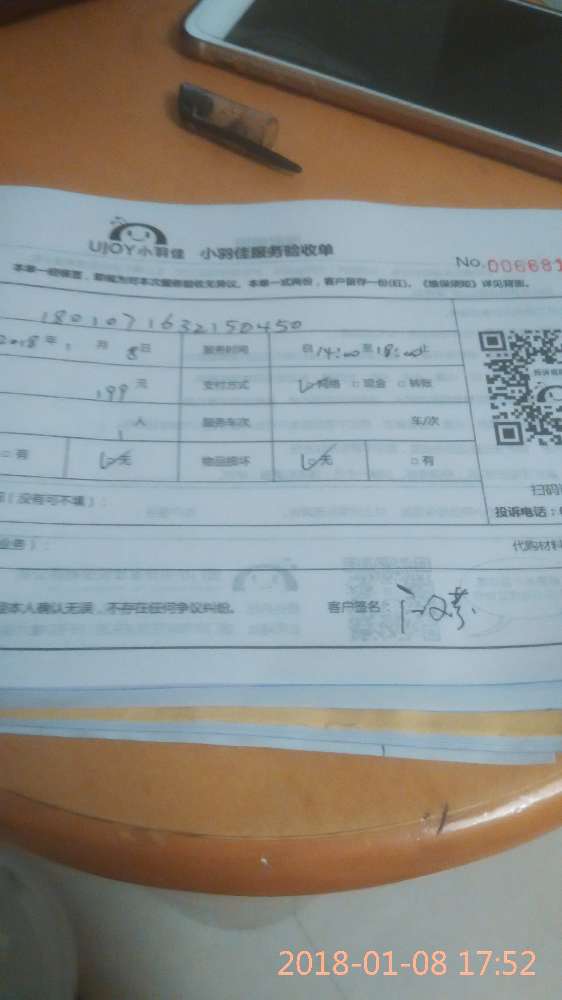 UJOY小羽佳 小羽佳服务验收单
No.006681
本单一经签署，即视为对本次服务验收无异议。本单一式两份，客户留存一份(红)。《维保须知》详见背面。
1801071632150450
2018年1月8日 服务时间 自14:00至18:00止
199元 支付方式 ☑网络 □现金 □转账
投诉
1人 服务车次 车/次
□有 ☑无 物品损坏 ☑无 □有
扫码
（没有可不填）：
投诉电话：
业务）：
代购材料
本人确认无误，不存在任何争议纠纷。 客户签名：
2018-01-08 17:52